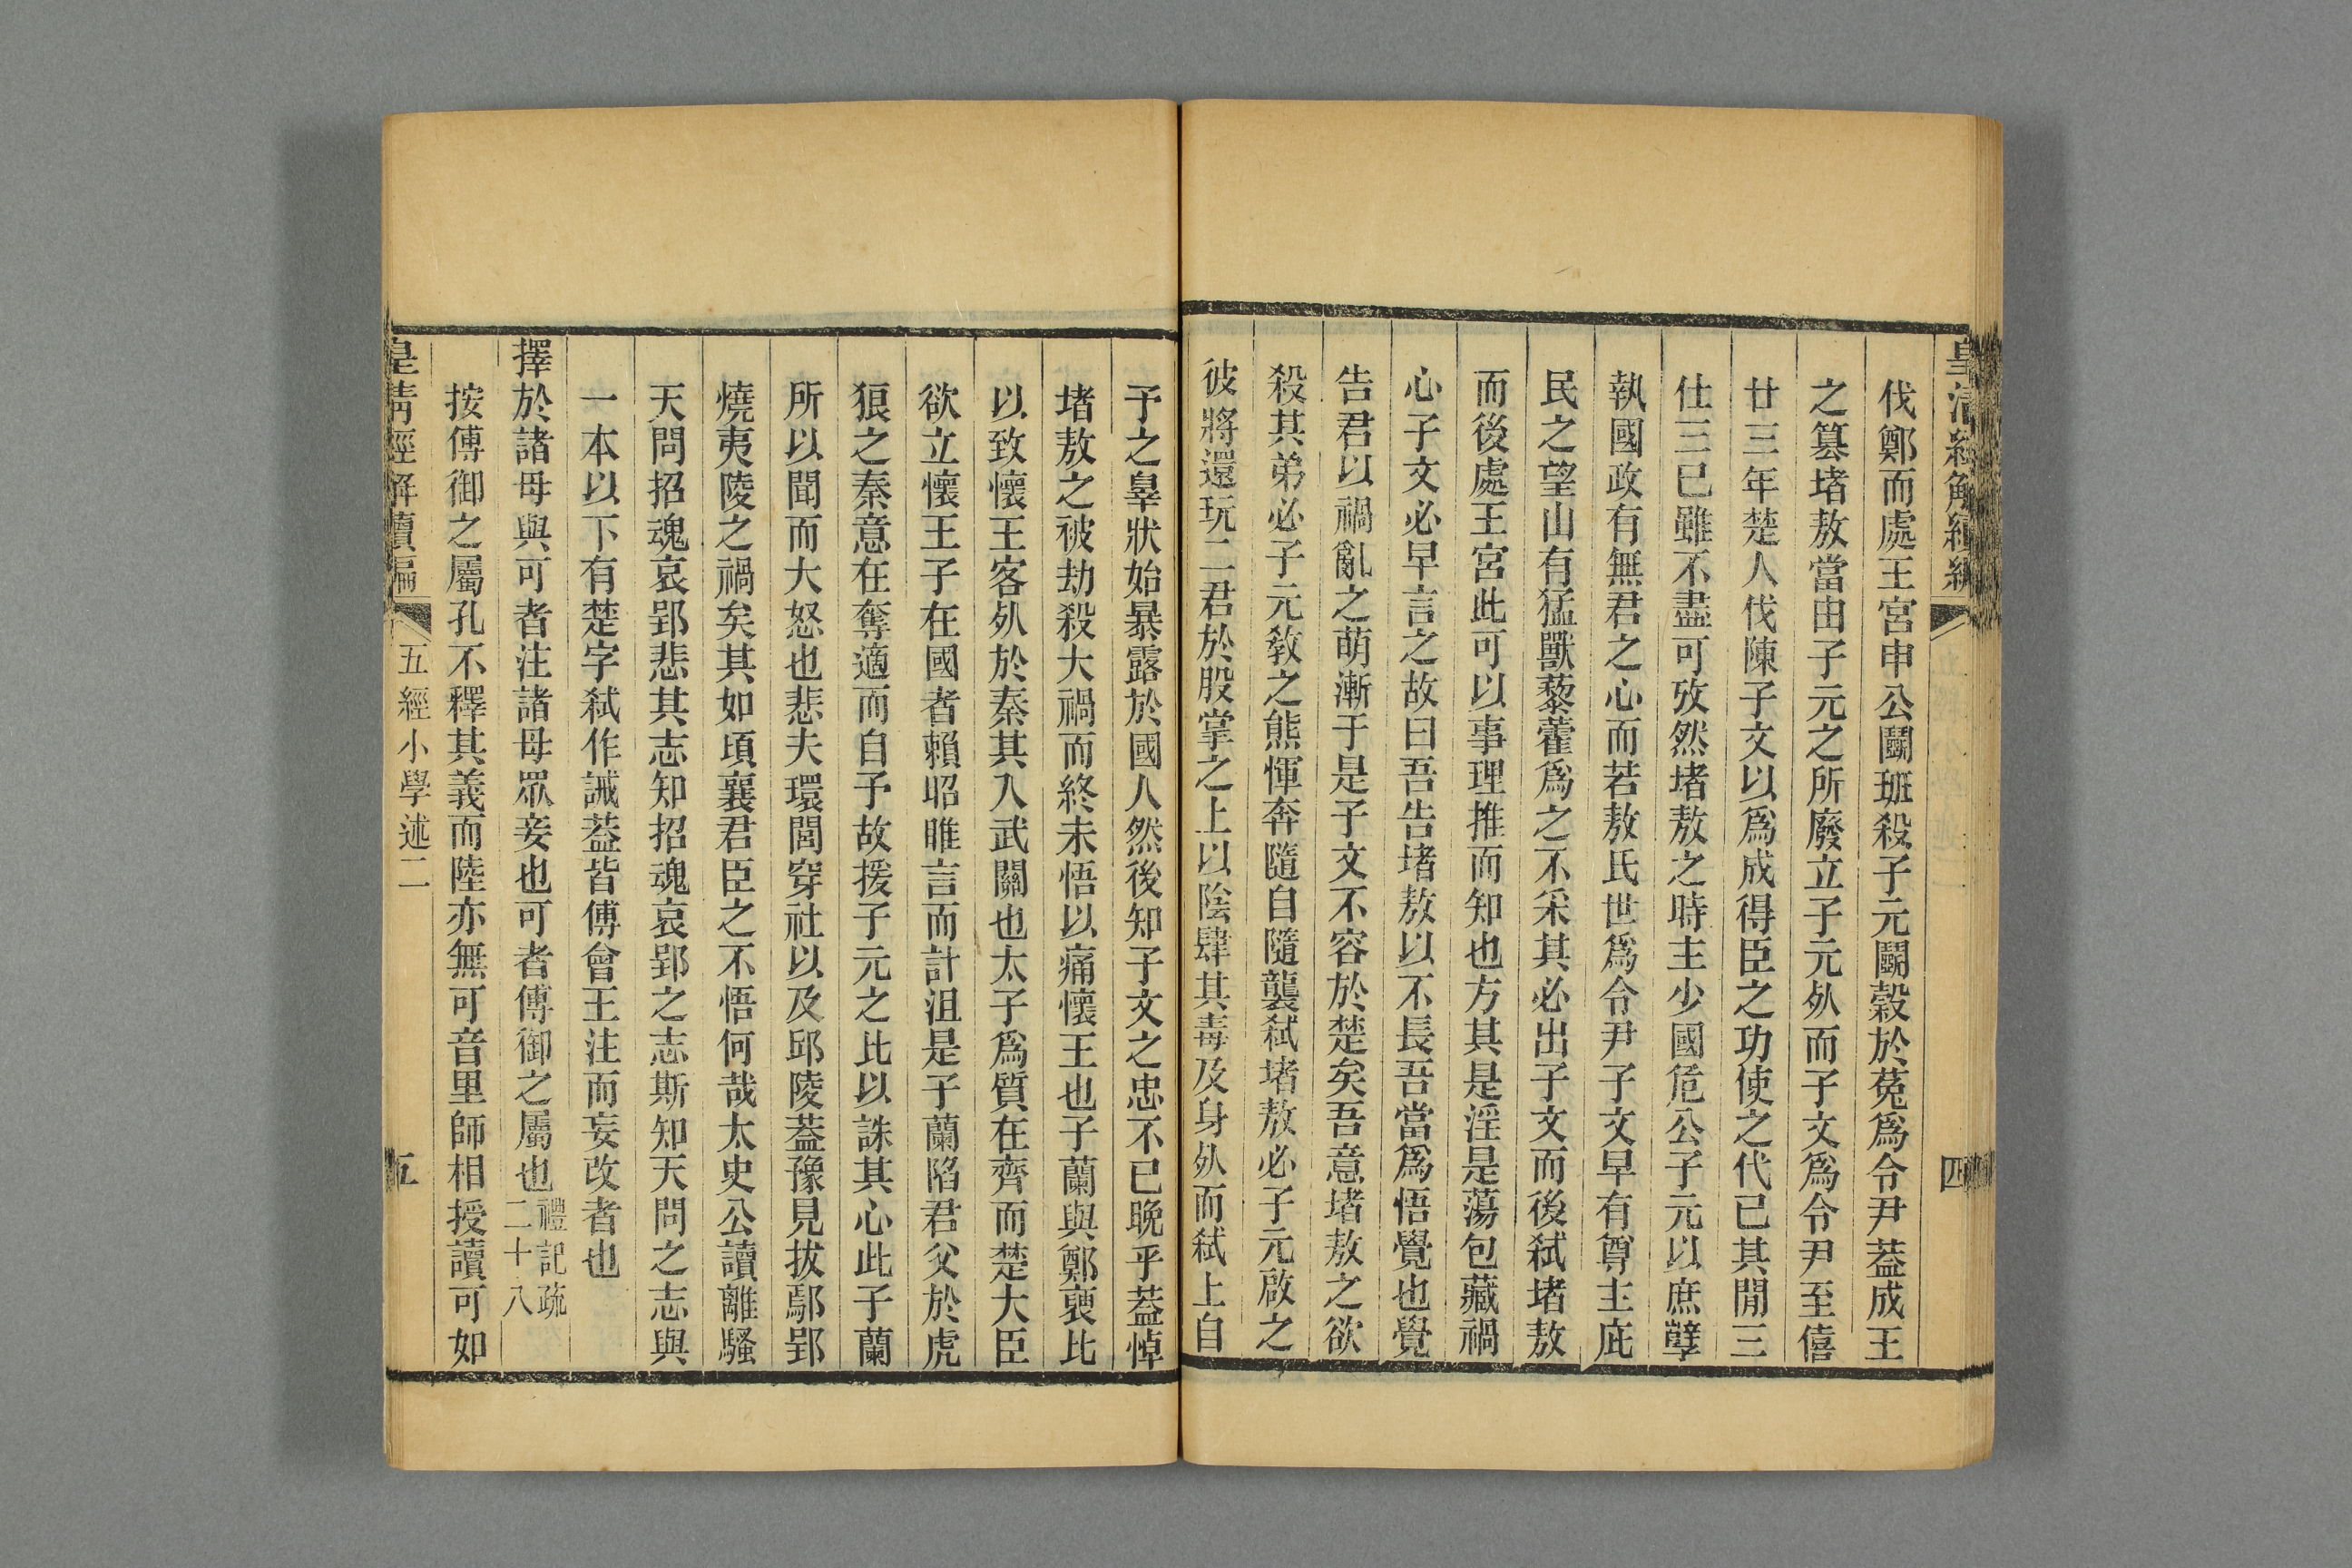 皇清經解續編
四
伐鄭而處王宮申公鬭班殺子元鬭穀於菟爲令尹葢成王
之篡堵敖當由子元之所廢立子元㱾而子文爲令尹至僖
廿三年楚人伐陳子文以爲成得臣之功使之代已其閒三
仕三已雖不盡可攷然堵敖之時主少國危公子元以庶孽
執國政有無君之心而若敖氏世爲令尹子文早有尊主庇
民之望山有猛獸藜藿爲之不采其必出子文而後弒堵敖
而後處王宮此可以事理推而知也方其是淫是蕩包藏禍
心子文必早言之故曰吾告堵敖以不長吾當爲悟覺也覺
告君以禍亂之萌漸于是子文不容於楚矣吾意堵敖之欲
殺其弟必子元敎之熊惲奔隨自隨襲弒堵敖必子元啟之
彼將還玩二君於股掌之上以陰肆其毒及身㱾而弒上自
予之辠狀始暴露於國人然後知子文之忠不已晚乎葢悼
堵敖之被劫殺大禍而終未悟以痛懷王也子蘭與鄭褏比
以致懷王客㱾於秦其入武關也太子爲質在齊而楚大臣
欲立懷王子在國者賴昭睢言而計沮是子蘭陷君父於虎
狼之秦意在奪適而自予故援子元之比以誅其心此子蘭
所以聞而大怒也悲夫環閭穿社以及邱陵葢豫見拔鄢郢
燒夷陵之禍矣其如頃襄君臣之不悟何哉太史公讀離騷
天問招魂哀郢悲其志知招魂哀郢之志斯知天問之志與
一本以下有楚字弒作誡葢皆傅會王注而妄改者也
擇於諸母與可者注諸母眾妾也可者傅御之屬也禮記疏二十八
按傅御之屬孔不釋其義而陸亦無可音里師相授讀可如
皇清經解續編
五經小學述二
五